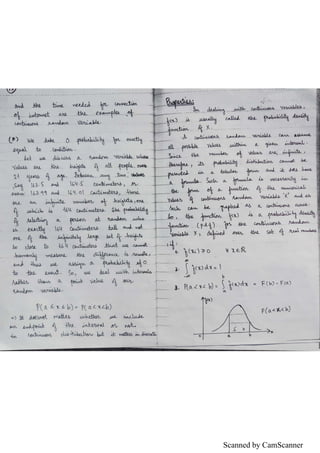 and the time needed for connection
of internet are the examples of
continuous random variable.
(*) We take 0 probability for exactly
equal to condition.
Let us discuss a random variable whose
values are the heights of all people over
21 years of age. Between any two values
say 163.5 and 164.5 centimeters, or
even 163.99 and 164.01 centimeters, there
are an infinite number of heights, one
of which is 164 centimeters. The probability
of selecting a person at random who
is exactly 164 centimeters tall and not
one of the infinitely large set of heights
so close to 164 centimeters that we cannot
humanly measure the difference is remote,
and thus we assign a probability of 0
to the event. So, we deal with intervals
rather than a point value of our
random variable.
P(a ≤ x ≤ b) = P(a < x < b)
=> It doesnot matter whether we include
an endpoint of the interval or not.
in continuous distribution but it matters in discrete
Properties:
In dealing with continuous variables,
f(x) is usually called the probability density
function of X.
A continuous random variable can assume
all possible values within a given interval.
Since the number of values are infinite,
therefore, its probability distribution cannot be
presented in a tabular form and it does have
a formula. Such a formula is necessarily in
the form of a function of the numerical
values of continuous random variable 'X' and as
such can be graphed as a continuous curve.
So, the function f(x) is a probability density
function (p.d.f) for the continuous random
variable X, defined over the set of real numbers
if:
1. f(x) ≥ 0 ∀ x ∈ R
2. ∫ f(x) dx = 1
3. P(a < x < b) = ∫ f(x) dx = F(b) - F(a)
f(x)
P(a < x < b)
a b x
Scanned by CamScanner